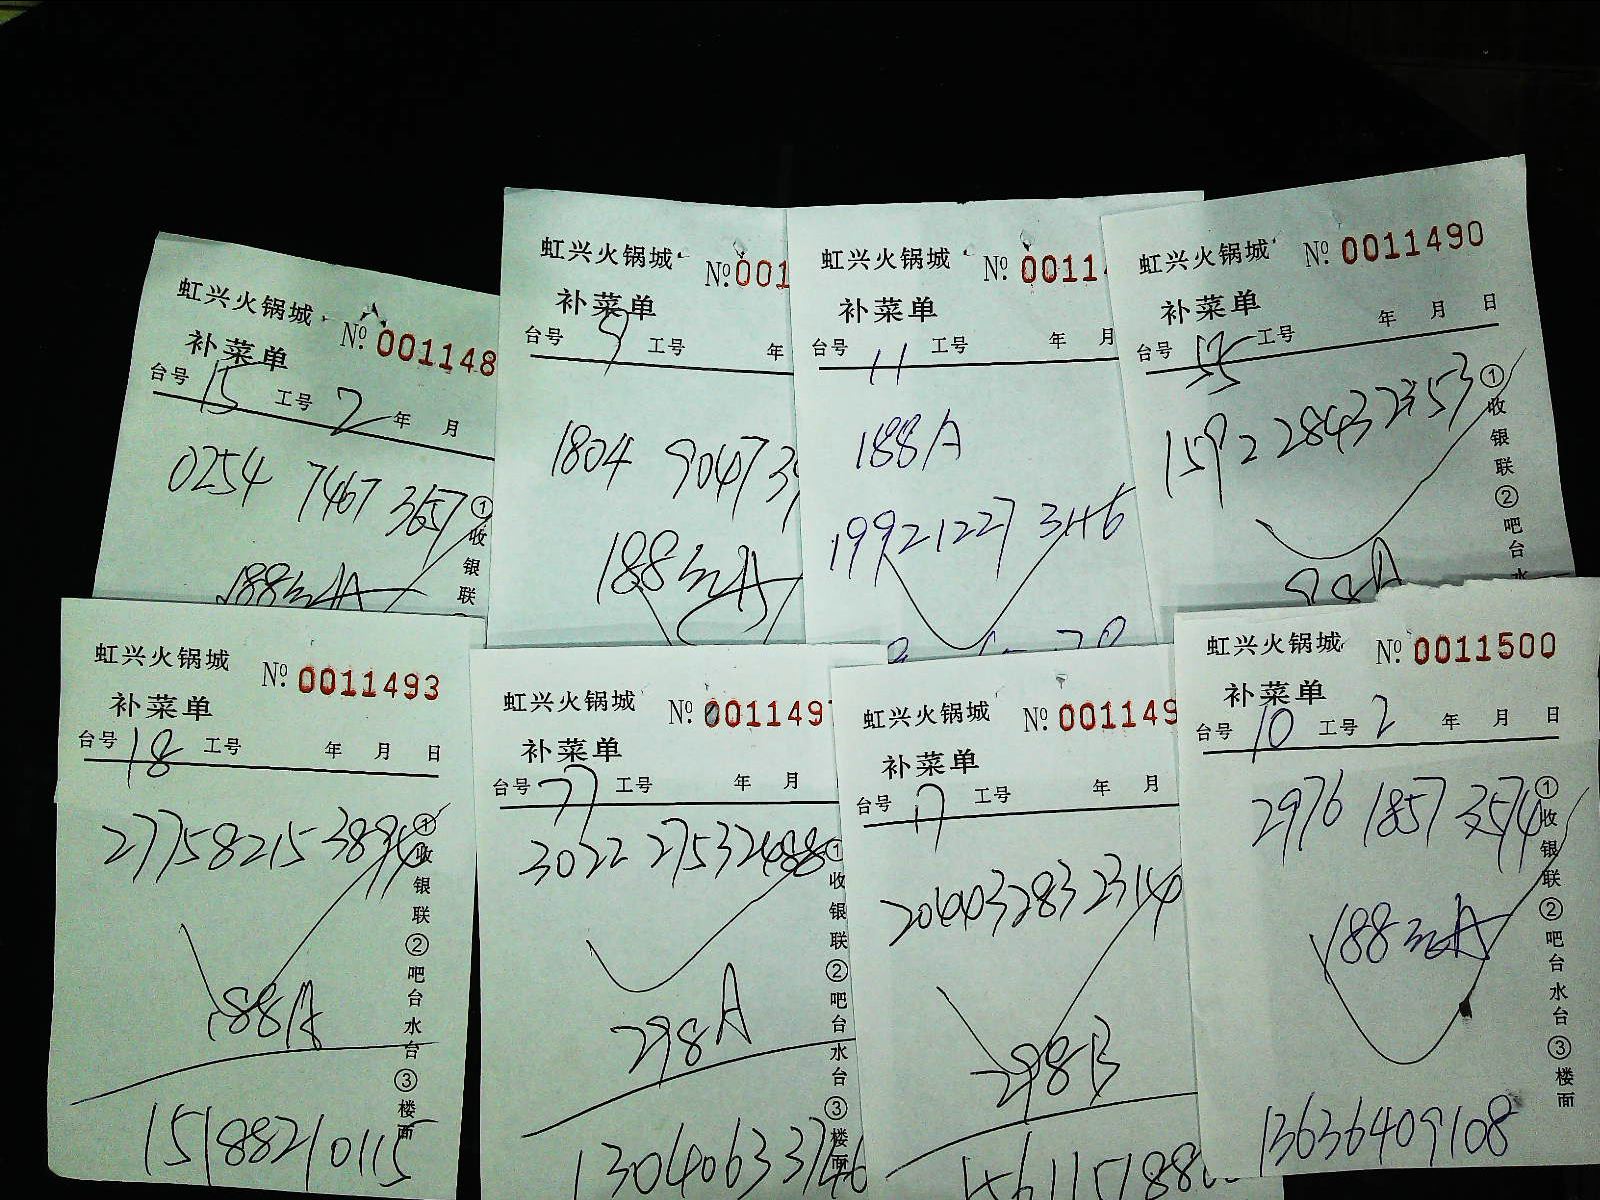 虹兴火锅城 №001148
补菜单
台号 15 工号 2 年 月
0254 7467 3657
188 A
①收银联
虹兴火锅城 №001
补菜单
台号 9 工号 年
1804 9047 39
188 A
虹兴火锅城 №0011
补菜单
台号 11 工号 年 月
188A
19921227 3146
虹兴火锅城 №0011490
补菜单
台号 55 工号 年 月 日
1592 2843 2353
98A
①收银联②吧台水
虹兴火锅城 №0011493
补菜单
台号 18 工号 年 月 日
27758215 3894
188A
15188210115
①收银联②吧台水台③楼面
虹兴火锅城 №001149
补菜单
台号 77 工号 年 月
3022 27532488
298A
13040633746
①收银联②吧台水台③楼面
虹兴火锅城 №001149
补菜单
台号 17 工号 年 月
204403283 2314
298B
156115188
虹兴火锅城 №0011500
补菜单
台号 10 工号 2 年 月 日
2976 1857 3574
188 A
13636409108
①收银联②吧台水台③楼面